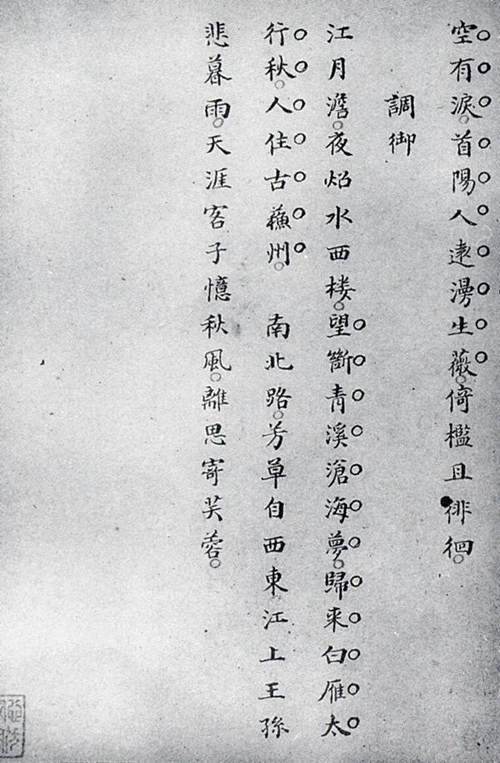 空有淚。首陽人遠漫生薇。倚檻且徘徊。
調御
江月澹。夜炤水西楼。望斷青溪滄海夢。歸来白雁太
行秋。人住古蘓州。　南北路。芳草自西東。江上王孫
悲暮雨。天涯客子憶秋風。離思寄芙蓉。